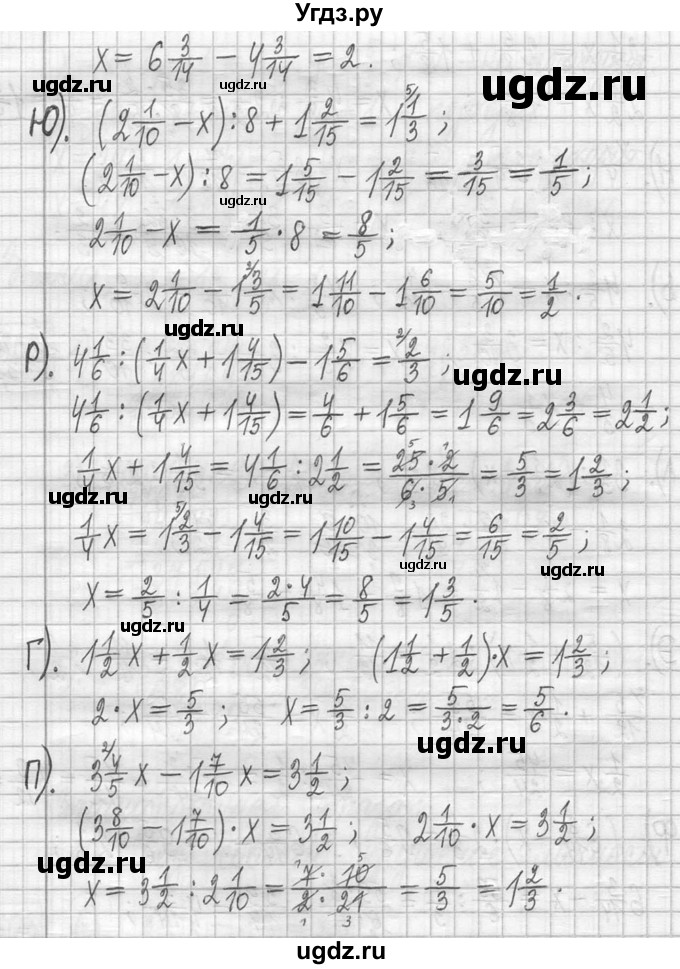 Угдз.ру
x = 6 3/14 − 4 3/14 = 2.
ugdz.ru ugdz.ru ugdz.ru
Ю). (2 1/10 − x) : 8 + 1 2/15 = 1 ⁵⁾1/3 ;
(2 1/10 − x) : 8 = 1 5/15 − 1 2/15 = 3/15 = 1/5 ;
ugdz.ru
2 1/10 − x = 1/5 · 8 = 8/5 ;
x = 2 1/10 − 1 ²⁾3/5 = 1 11/10 − 1 6/10 = 5/10 = 1/2 .
ugdz.ru
Р). 4 1/6 : (1/4 x + 1 4/15) − 1 5/6 = ²⁾2/3 ;
ugdz.ru
4 1/6 : (1/4 x + 1 4/15) = 4/6 + 1 5/6 = 1 9/6 = 2 3/6 = 2 1/2 ;
ugdz.ru
1/4 x + 1 4/15 = 4 1/6 : 2 1/2 = 25 · 2/6 · 5 = 5/3 = 1 2/3 ;
ugdz.ru ugdz.ru
1/4 x = 1 ⁵⁾2/3 − 1 4/15 = 1 10/15 − 1 4/15 = 6/15 = 2/5 ;
ugdz.ru ugdz.ru
x = 2/5 : 1/4 = 2·4/5 = 8/5 = 1 3/5 .
ugdz.ru
Г). 1 1/2 x + 1/2 x = 1 2/3 ; (1 1/2 + 1/2) · x = 1 2/3 ;
ugdz.ru
2 · x = 5/3 ; x = 5/3 : 2 = 5/3·2 = 5/6 .
ugdz.ru
П). 3 ²⁾4/5 x − 1 7/10 x = 3 1/2 ;
(3 8/10 − 1 7/10) · x = 3 1/2 ; 2 1/10 · x = 3 1/2 ;
ugdz.ru ugdz.ru
x = 3 1/2 : 2 1/10 = 7 · 10/2 · 21 = 5/3 = 1 2/3 .
ugdz.ru